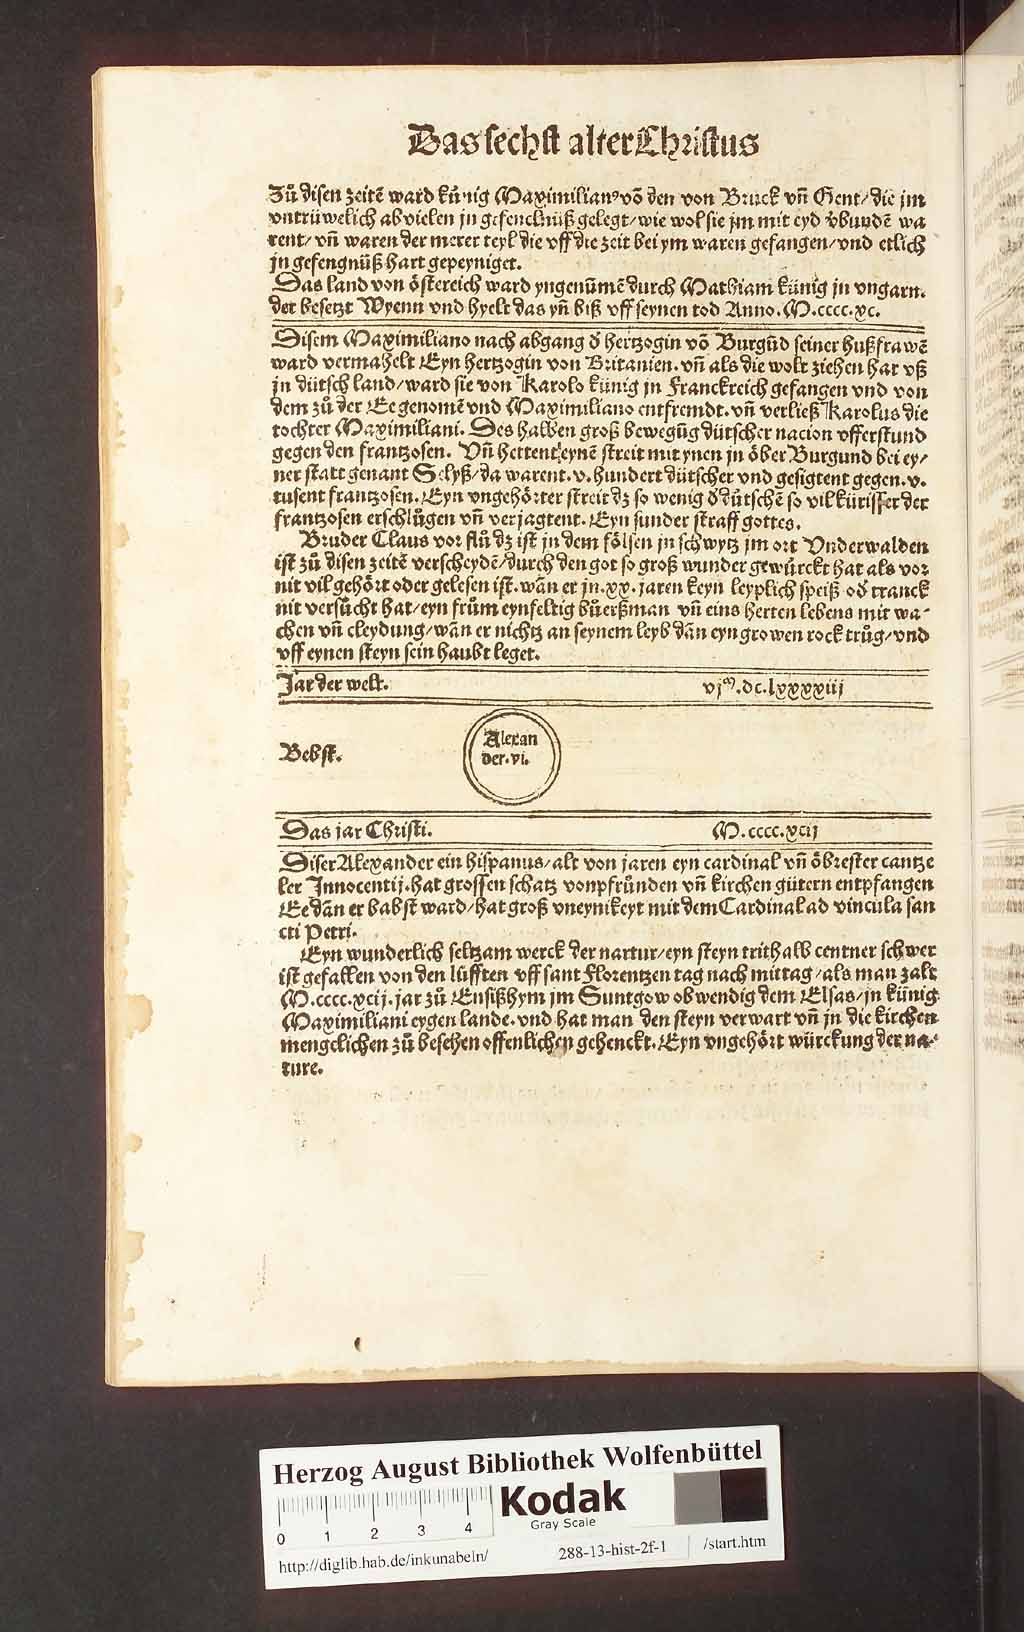 Das sechst alter Christus
Zů disen zeitē ward künig Maximilianꝰ vō den von Bruck vn̄ Gent/die jm
vntrüwelich ab vielen jn gefencknüß gelegt/wie wol sie jm mit eyd v̄bundē wa
rent/vn̄ waren der merer teyl die vff die zeit bei ym waren gefangen/vnd etlich
jn gefengnüß hart gepeyniget.
Das land von östereich ward yngenūmē durch Mathiam künig jn vngarn.
der besetzt Wyenn vnd hyelt das yn̄ biß vff seynen tod Anno.M.cccc.xc.
Disem Maximiliano nach abgang d̄ hertzogin vō Burgūd seiner hußfrawē
ward vermahelt Eyn hertzogin von Britanien.vn̄ als die wolt ziehen har vß
jn dütsch land/ward sie von Karolo künig jn Franckreich gefangen vnd von
dem zů der Ee genomē vnd Maximiliano entfremdt.vn̄ verließ Karolus die
tochter Maximiliani. Des halben groß bewegūg dütscher nacion vfferstund
gegen den frantzosen. Vn̄ hettent eynē streit mit ynen jn öber Burgund bei ey/
ner statt genant Selyß/da warent.v.hundert dütscher vnd gesigtent gegen.v.
tusent frantzosen.Eyn vngehörter streit dz so wenig d̄ dütschē so vil kürisser der
frantzosen erschlůgen vn̄ verjagtent.Eyn sunder straff gottes.
Bruder Claus vor flů dz ist jn dem fölsen jn schwytz jm ort Vnderwalden
ist zů disen zeitē verscheydē/durch den got so groß wunder gewürckt hat als vor
nit vil gehört oder gelesen ist.wān er jn.xx.jaren keyn leyplich speiß od̄ tranck
nit versůcht hat/eyn frům eynfeltig bůerßman vn̄ eins herten lebens mit wa-
chen vn̄ cleydung/wān er nichtz an seynem leyb dān eyn growen rock trůg/vnd
vff eynen steyn sein haubt leget.
Jar der welt. vjᵐ.dc.lxxxxiij
Alexan
der.vi.
Bebst.
Das jar Christi. M.cccc.xcij
Diser Alexander ein hispanus/alt von jaren eyn cardinal vn̄ öbrester cantze
ler Innocentij.hat grossen schatz von pfründen vn̄ kirchen gütern entpfangen
Ee dān er babst ward/hat groß vneynikeyt mit dem Cardinal ad vincula san
cti Petri.
Eyn wunderlich seltzam werck der nartur/eyn steyn trithalb centner schwer
ist gefallen von den lüfften vff sant Florentzen tag nach mittag/als man zalt
M.cccc.xcij.jar zů Ensißhym jm Suntgow obwendig dem Elsas/jn künig
Maximiliani eygen lande.vnd hat man den steyn verwart vn̄ jn die kirchen
mengclichen zů besehen offenlichen gehenckt.Eyn vngehört würckung der na-
ture.
Herzog August Bibliothek Wolfenbüttel
0 1 2 3 4
Kodak
Gray Scale
http://diglib.hab.de/inkunabeln/ 288-13-hist-2f-1 /start.htm